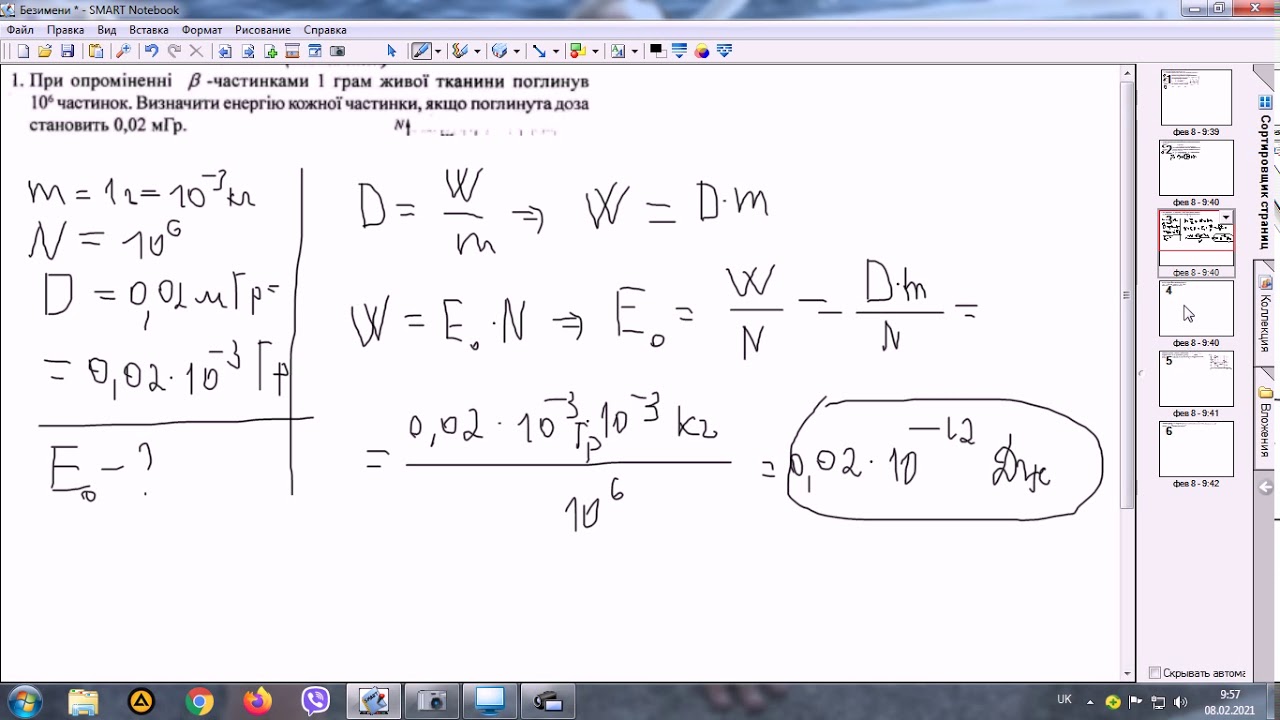 Безимени * - SMART Notebook
Файл Правка Вид Вставка Формат Рисование Справка
1. При опроміненні β-частинками 1 грам живої тканини поглинув
10⁶ частинок. Визначити енергію кожної частинки, якщо поглинута доза
становить 0,02 мГр.
N
m = 1г = 10⁻³ кг
N = 10⁶
D = 0,02 мГр =
= 0,02 · 10⁻³ Гр
E₀ - ?
D = W/m ⇒ W = D·m
W = E₀ · N ⇒ E₀ = W/N = D·m/N =
= 0,02 · 10⁻³ Гр · 10⁻³ кг / 10⁶ = 0,02 · 10⁻¹² Дж
фев 8 - 9:39
фев 8 - 9:40
фев 8 - 9:40
4
фев 8 - 9:40
5
фев 8 - 9:41
6
фев 8 - 9:42
Сортировщик страниц
Коллекция
Вложения
Скрывать автома
UK
9:57
08.02.2021